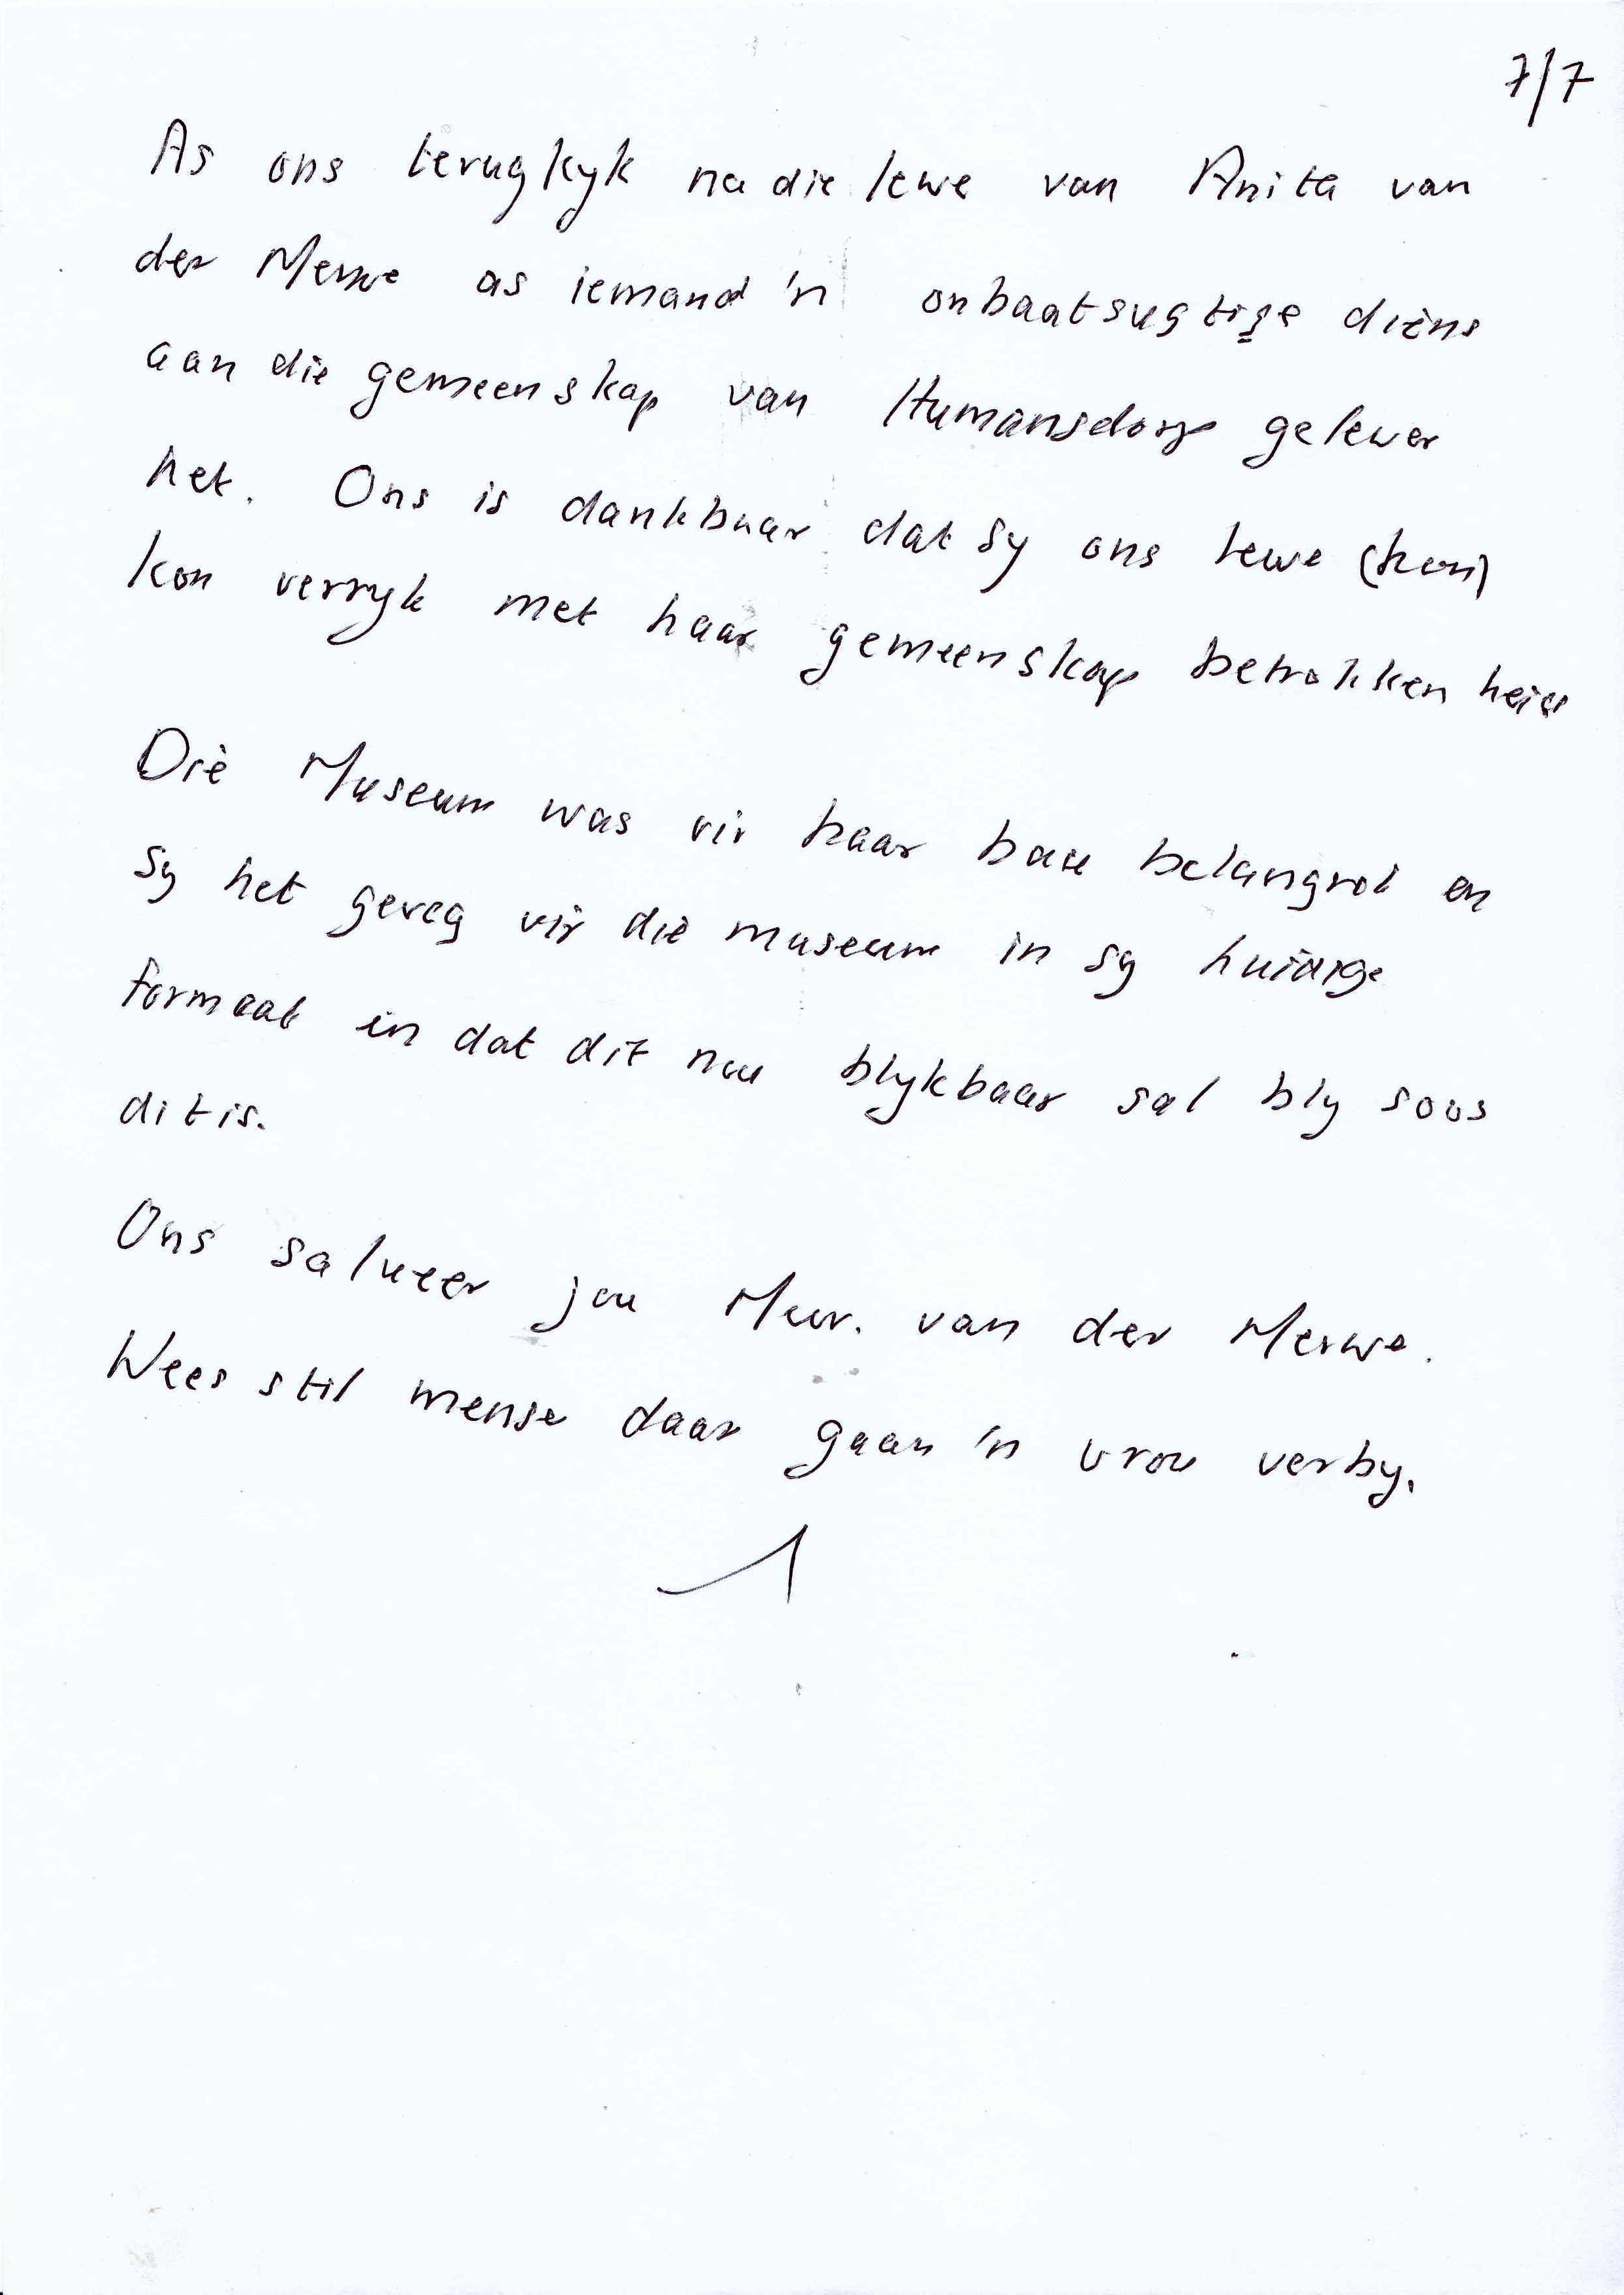 7/7
As ons terugkyk na die lewe van Anita van
der Merwe as iemand 'n onbaatsugtige diens
aan die gemeenskap van Humansdorp gelewer
het. Ons is dankbaar dat sy ons lewe
kon verryk met haar gemeenskap betrokkenheid
Die Museum was vir haar baie belangrik en
sy het geveg vir die museum in sy huidige
formaat en dat dit nou blykbaar sal bly soos
dit is.
Ons salueer jou Mevr. van der Merwe.
Wees stil mense daar gaan 'n vrou verby.